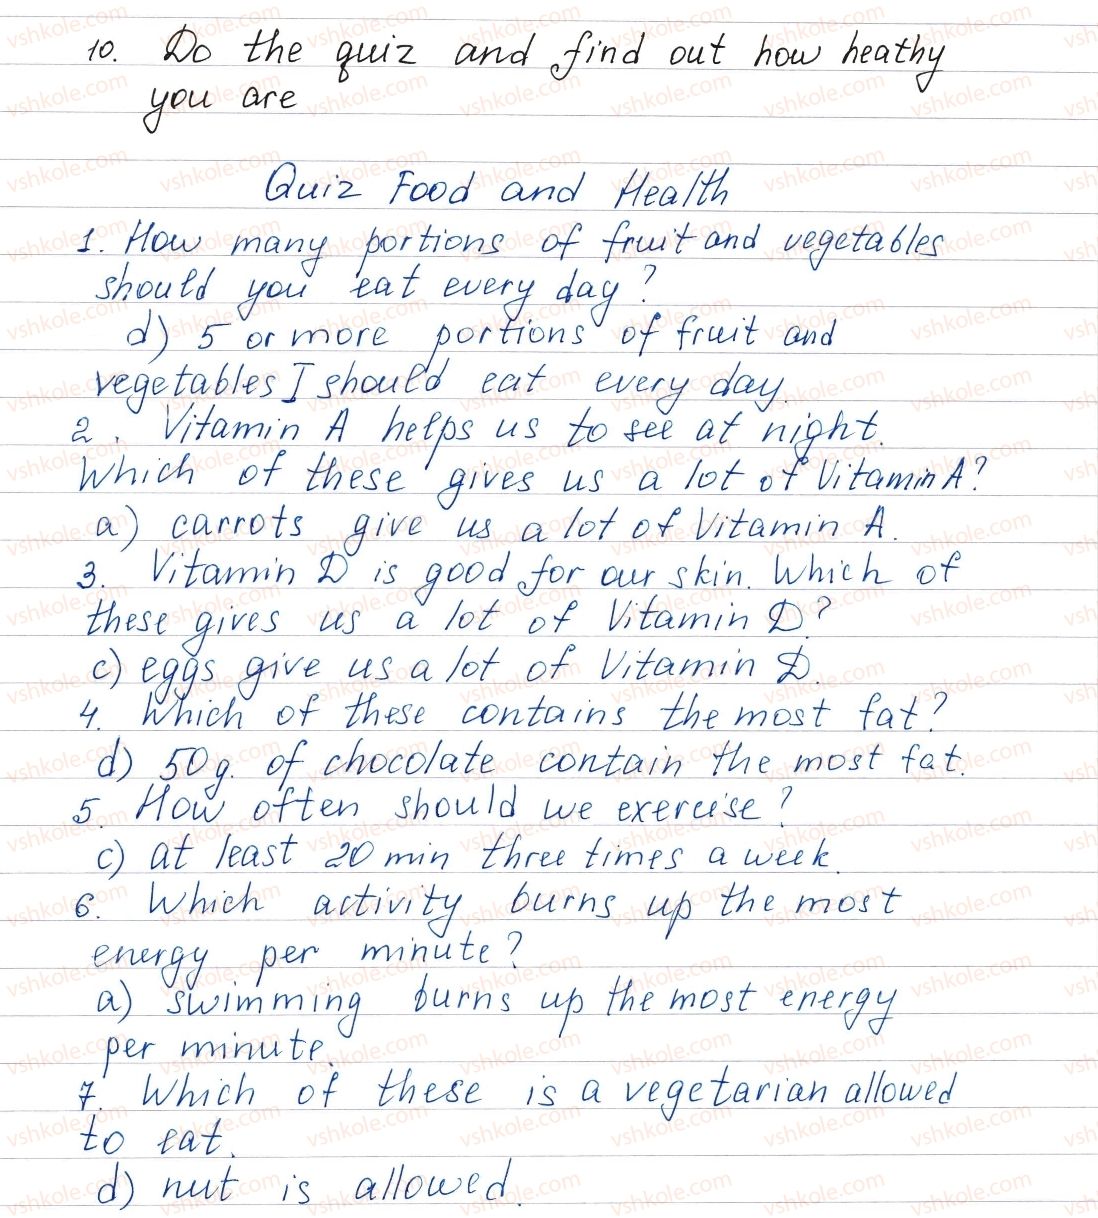 10. Do the quiz and find out how heathy
you are
Quiz Food and Health
1. How many portions of fruit and vegetables
should you eat every day?
d) 5 or more portions of fruit and
vegetables I should eat every day.
2. Vitamin A helps us to see at night.
Which of these gives us a lot of Vitamin A?
a) carrots give us a lot of Vitamin A.
3. Vitamin D is good for our skin. Which of
these gives us a lot of Vitamin D?
c) eggs give us a lot of Vitamin D.
4. Which of these contains the most fat?
d) 50 g. of chocolate contain the most fat.
5. How often should we exercise?
c) at least 20 min three times a week.
6. Which activity burns up the most
energy per minute?
a) swimming burns up the most energy
per minute.
7. Which of these is a vegetarian allowed
to eat.
d) nut is allowed.